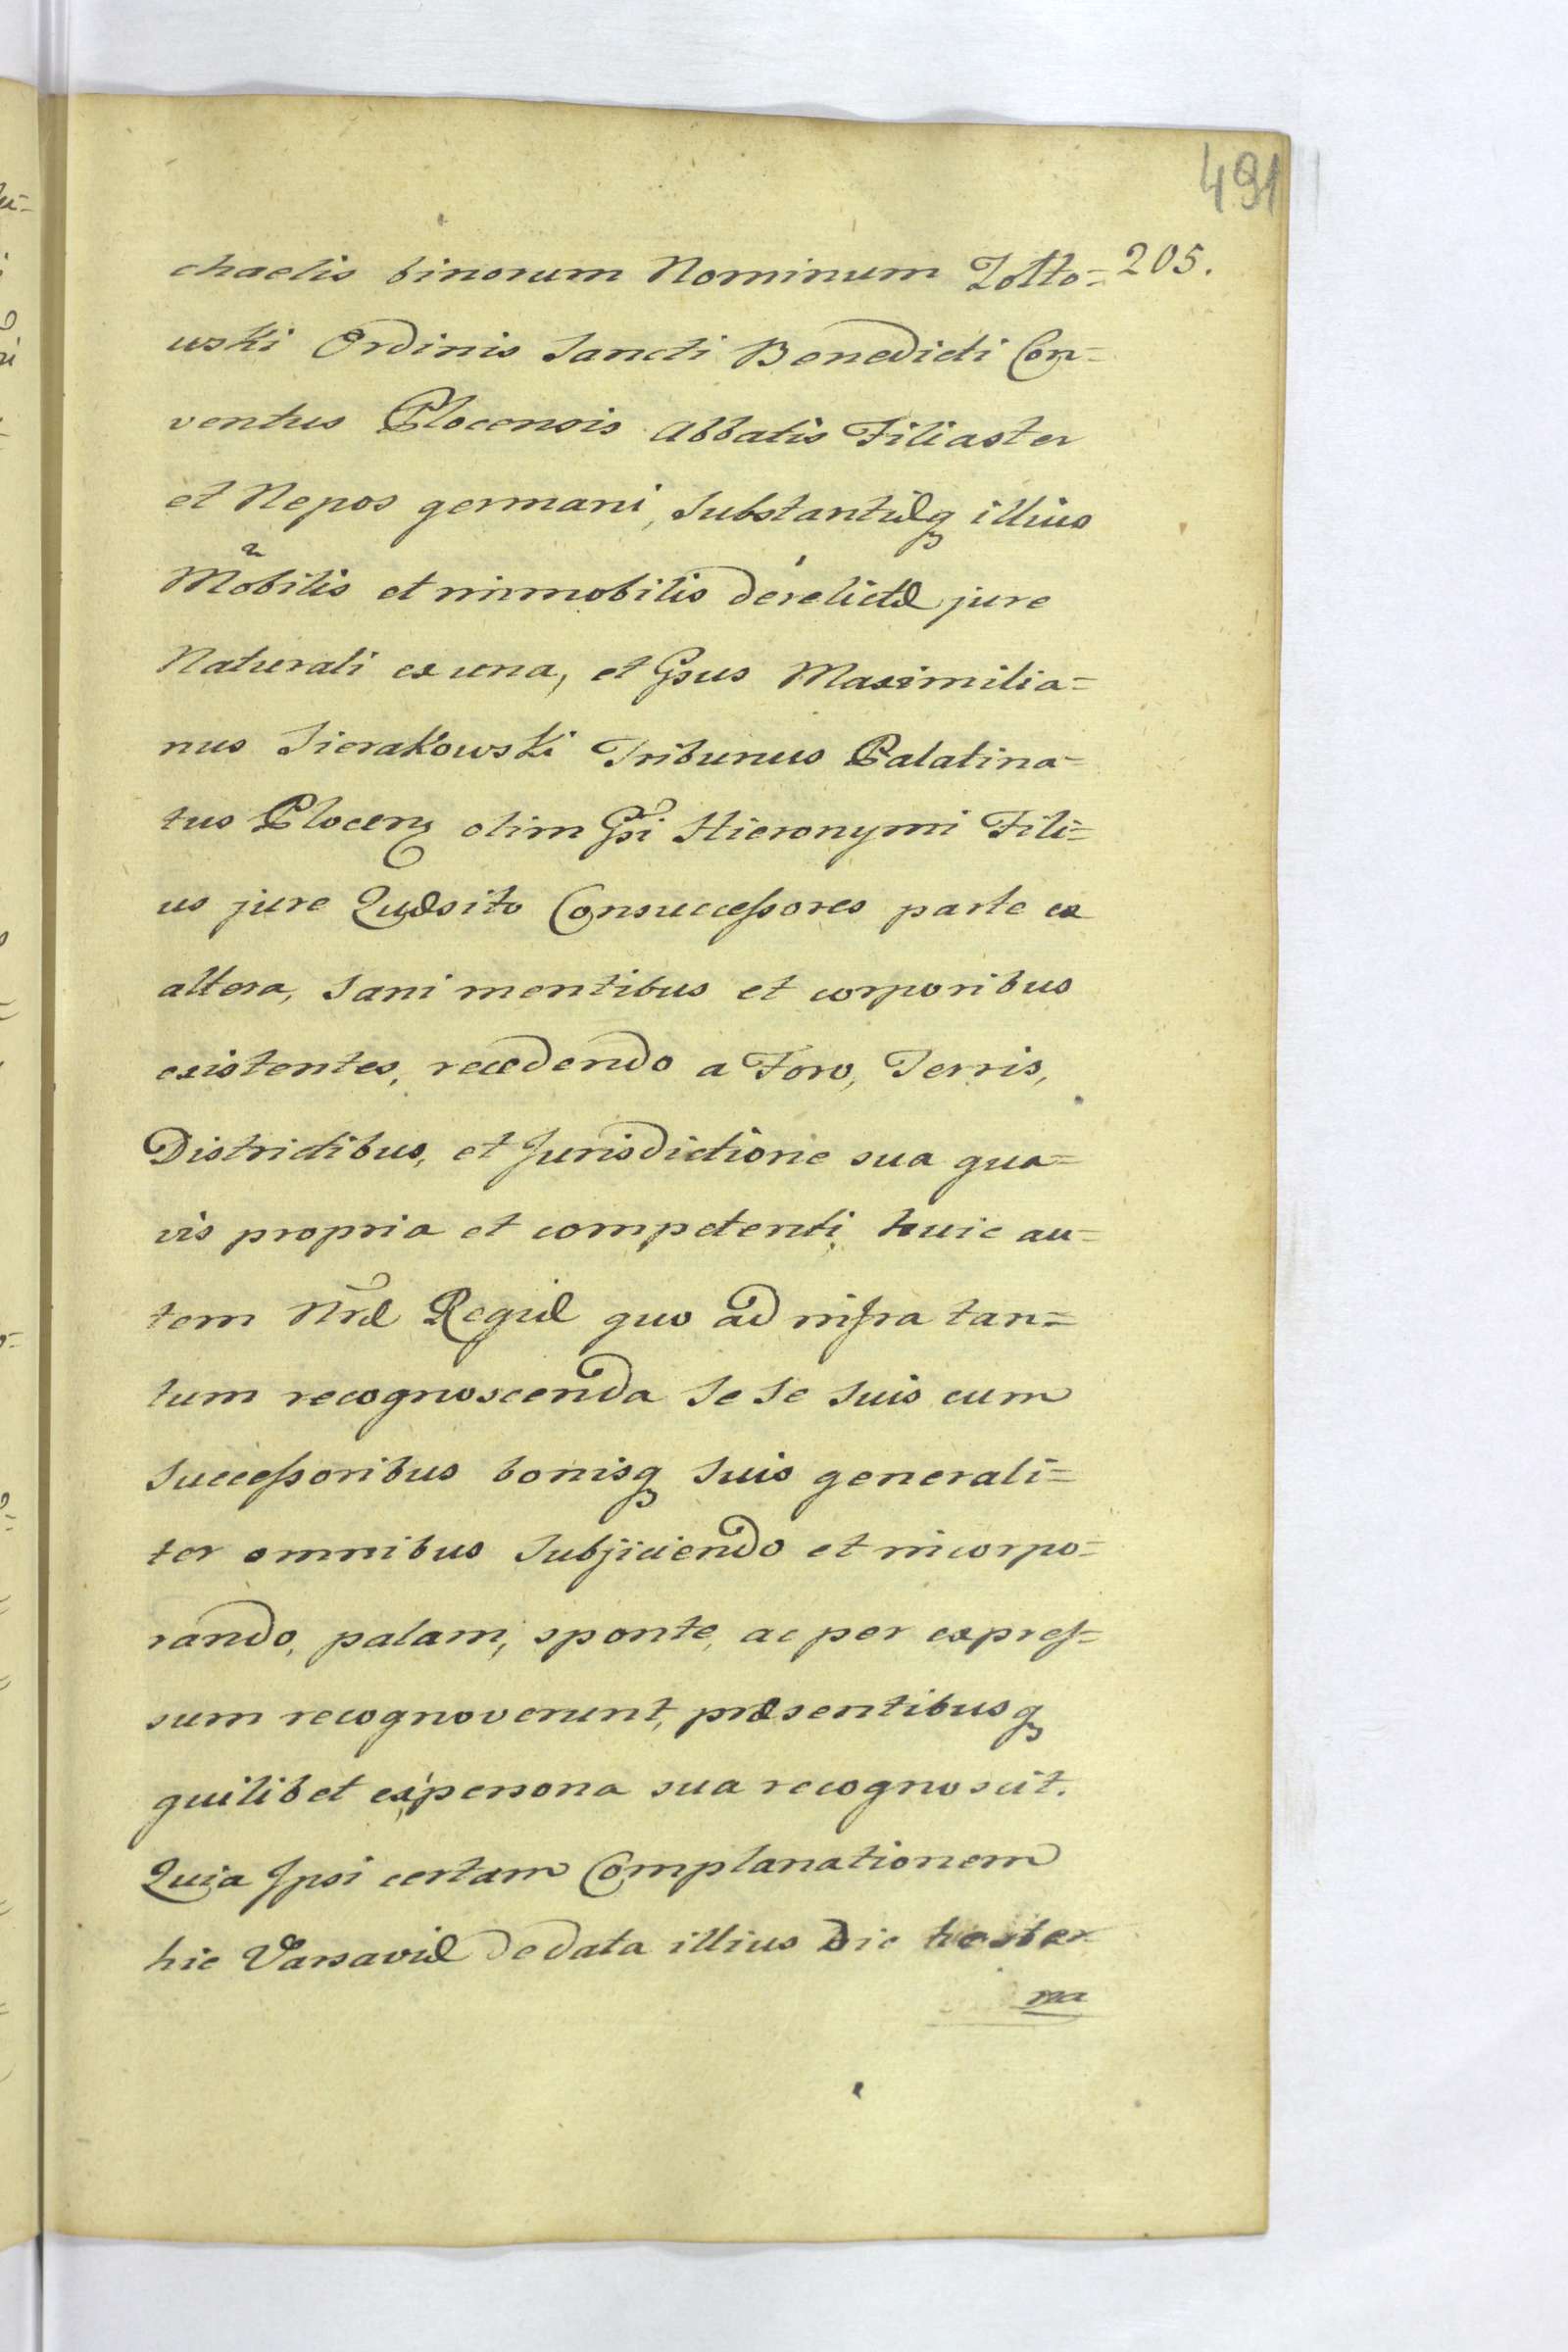 491
chaelis binorum Nominum Zotto= 205.
wski Ordinis Sancti Benedicti Con=
ventus Plocensis Abbatis Filiaster
et Nepos germani, Substantiæq illius
Mobilis et immobilis derelictæ jure
Naturali ex una, et Gsus Maximilia=
nus Sierakowski Tribunus Palatina=
tus Plocens olim Gsi Hieronymi Fili=
us jure Quæsito Consuccessores parte ex
altera, Sani mentibus et corporibus
existentes, recedendo a Foro, Terris,
Districtibus, et Jurisdictione sua qua=
vis propria et competenti, huic au=
tem Nræ Regiæ quo ad infra tan=
tum recognoscenda Se Se Suis cum
Successoribus bonisq Suis generali=
ter omnibus Subjiciendo et incorpo=
rando, palam, sponte, ac per expres=
sum recognoverunt, præsentibusq
quilibet ex persona sua recognoscit.
Quia Ipsi certam Complanationem
hic Varsaviæ de data illius Die hester
na